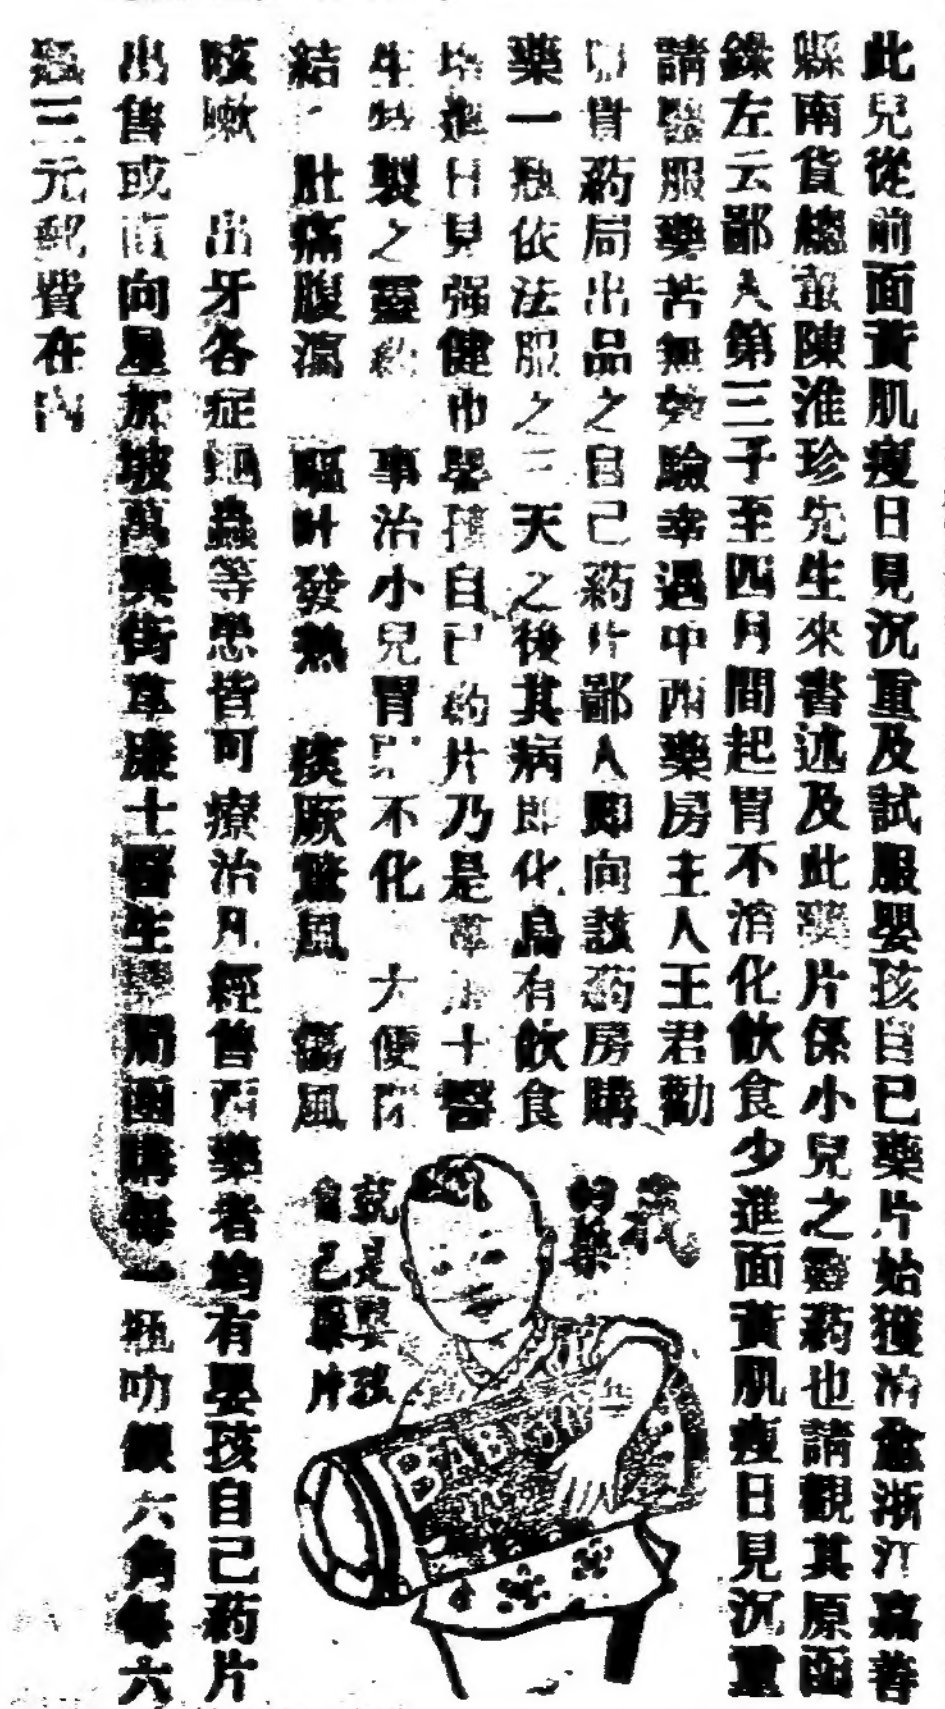 此兒從前面黃肌瘦日見沉重及試服嬰孩自已藥片始獲痊愈浙江嘉善
縣南貨總董陳淮珍先生來書述及此藥片係小兒之靈葯也請觀其原函
錄左云鄙人第三子至四月間起胃不消化飲食少進面黃肌瘦日見沉重
請醫服藥苦無效驗幸遇中西藥房主人王君勸
貴葯局出品之自己葯片鄙人即向該葯房購
藥一瓶依法服之三天之後其病即化烏有飲食
進日見强健也嬰孩自已葯片乃是韋廉士醫
生特製之靈葯 專治小兒胃 不化 大便閉
結 肚痛腹瀉 驅 發熱 痰厥驚風 傷風
咳嗽 出牙各症 蟲等患皆可療治凡經售西藥者均有嬰孩自己葯片
出售或直向星加坡萬興街韋廉士醫生藥局函購每一瓶叻銀六角每六
瓶三元郵費在內
我
的藥
就是嬰孩
自己藥片
BABY'S OWN